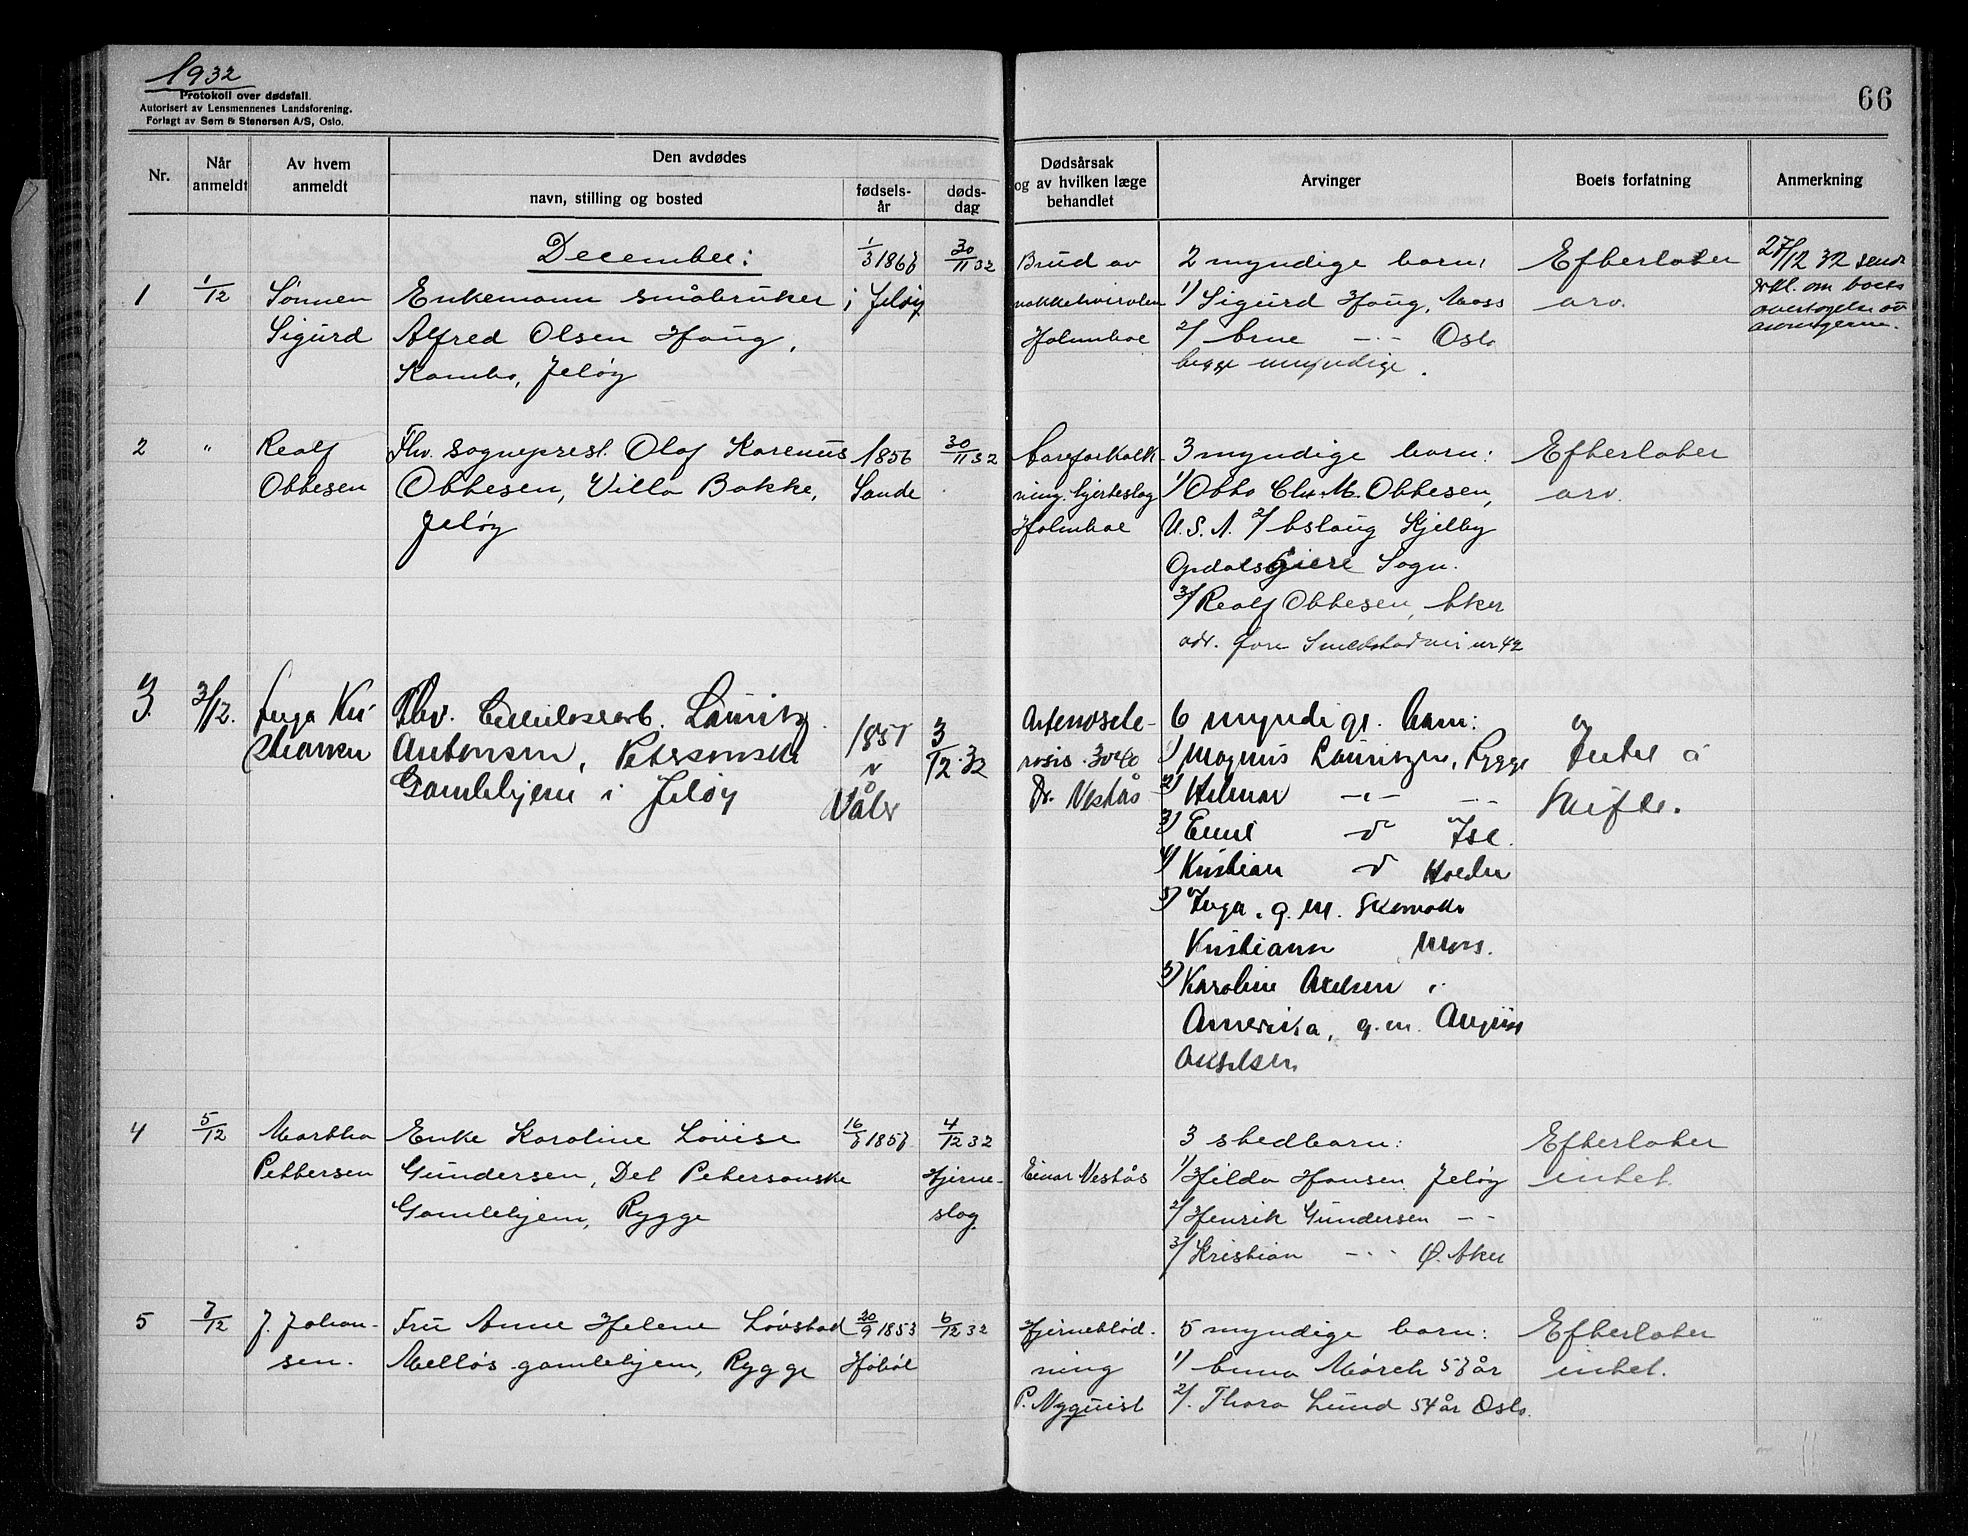 1932
Protokoll over dødsfall.
Autorisert av Lensmennenes Landsforening.
Forlagt av Sem & Stenersen A/S, Oslo.
66
Nr.
Når anmeldt
Av hvem anmeldt
Den avdødes
navn, stilling og bosted
fødselsår
dødsdag
Dødsårsak og av hvilken læge behandlet
Arvinger
Boets forfatning
Anmerkning
December:
1
1/12
Sønnen
Sigurd
Enkemann småbruker
Alfred Olsen Haug,
Kambo, Jeløy
i Jeløy
30/11 32
Brud av
nakkehvirvlen
Holmboe
2 myndige barn:
1/ Sigurd Haug, Moss
2/ Arne -"- Oslo
begge myndige.
Efterlater
arv.
27/12 32 send
om boets
overtagelse av
arvingerne.
2
"
Realf
Ottesen
Fhv. sogneprest Olaf Karenus
Ottesen, Villa Bakke,
Jeløy
1856
Sande
30/11 32
Aareforkalk-
ning. hjerteslag
Holmboe
3 myndige barn:
1/ Otto Chr. M. Ottesen,
U.S.A. 2/ Aslaug Kjelby
Sogn.
3/ Realf Ottesen, Aker
adr. nr 42
Efterlater
arv.
3.
3/12.
Inga Kri-
stiansen
Fhv. Cellulosearb. Lauritz
Antonsen, Petersonske
Gamlehjem i Jeløy
1851
Våler
3/12.32
Dr. Vestås
6 myndige barn:
1) Magnus Lauritzen, Rygge
2) Hilmar -"- -"-
3) Emil
4) Kristian
5) Inga, g. m.
Kristiansen Moss.
5) Karoline Axelsen i
Amerika, g. m. August
Akselsen
Intet å
skifte.
4
5/12
Martha
Pettersen
Enke Karoline Lovise
Gundersen, Det Petersonske
Gamlehjem, Rygge
4/12 32
Hjerne-
slag
Einar Vestås
3 stedbarn:
1/ Hilda Hansen Jeløy
2/ Henrik Gundersen -"-
3/ Kristian -"- Ø. Aker
Efterlater
intet.
5
7/12
J. Johan-
sen.
Fru Anne Helene Løvstad
Melløs gamlehjem, Rygge
20/9 1853
Hobøl
6/12 32
Hjerneblød-
ning
P. Nyquist
5 myndige barn:
1/ Anna Mørch 57 år
2/. Thora Lund 54 år Oslo.
Efterlater
intet.